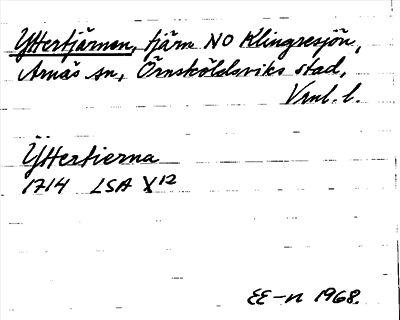 Yttertjärnen, tjärn NO Klingresjön,
Arnäs sn, Örnsköldsviks stad,
Vrnl. l.
Ÿttertierna
1714 LSA X¹²
EE-n 1968.